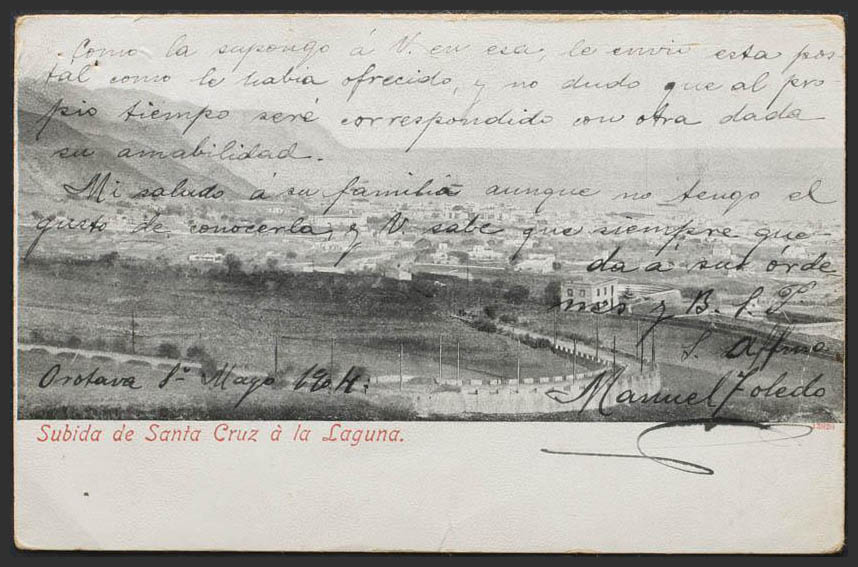 Como la supongo á V. en esa, le envio esta pos-
tal como le habia ofrecido, y no dudo que al pro-
pio tiempo seré correspondido con otra dada
su amabilidad.
Mi saludo á su familia aunque no tengo el
gusto de conocerla, y V. sabe que siempre que-
da á sus órde-
nes y B. S. P.
S. Affmo
Orotava 8 Mayo 1904.
Manuel Toledo
Subida de Santa Cruz à la Laguna.